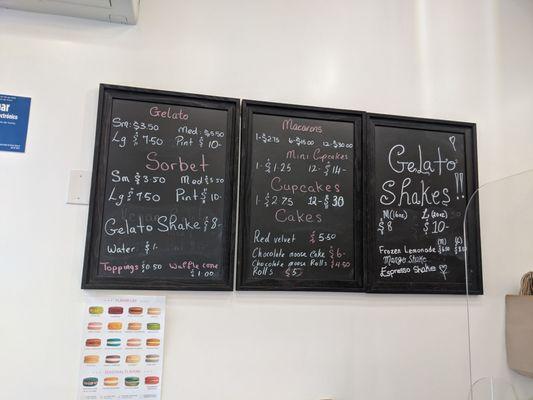 Gelato
Sm: $3.50 Med: $5.50
Lg $7.50 Pint $10-
Sorbet
Sm $3.50 Med $5.50
Lg $7.50 Pint $10-
Gelato Shake $8-
Water $1-
Toppings $0.50 Waffle cone
$1.00
Macarons
1-$2.75 6-$15.00 12-$30.00
Mini Cupcakes
1-$1.25 12-$14-
Cupcakes
1-$2.75 12-$30
Cakes
Red velvet $5.50
Chocolate moose Cake $6-
Chocolate moose Rolls $4.50
Rolls $5
Gelato
Shakes!!
M L
$8 $10-
Frozen Lemonade
Mango Shake
Espresso Shake
FLAVOR LIST
SEASONAL FLAVORS